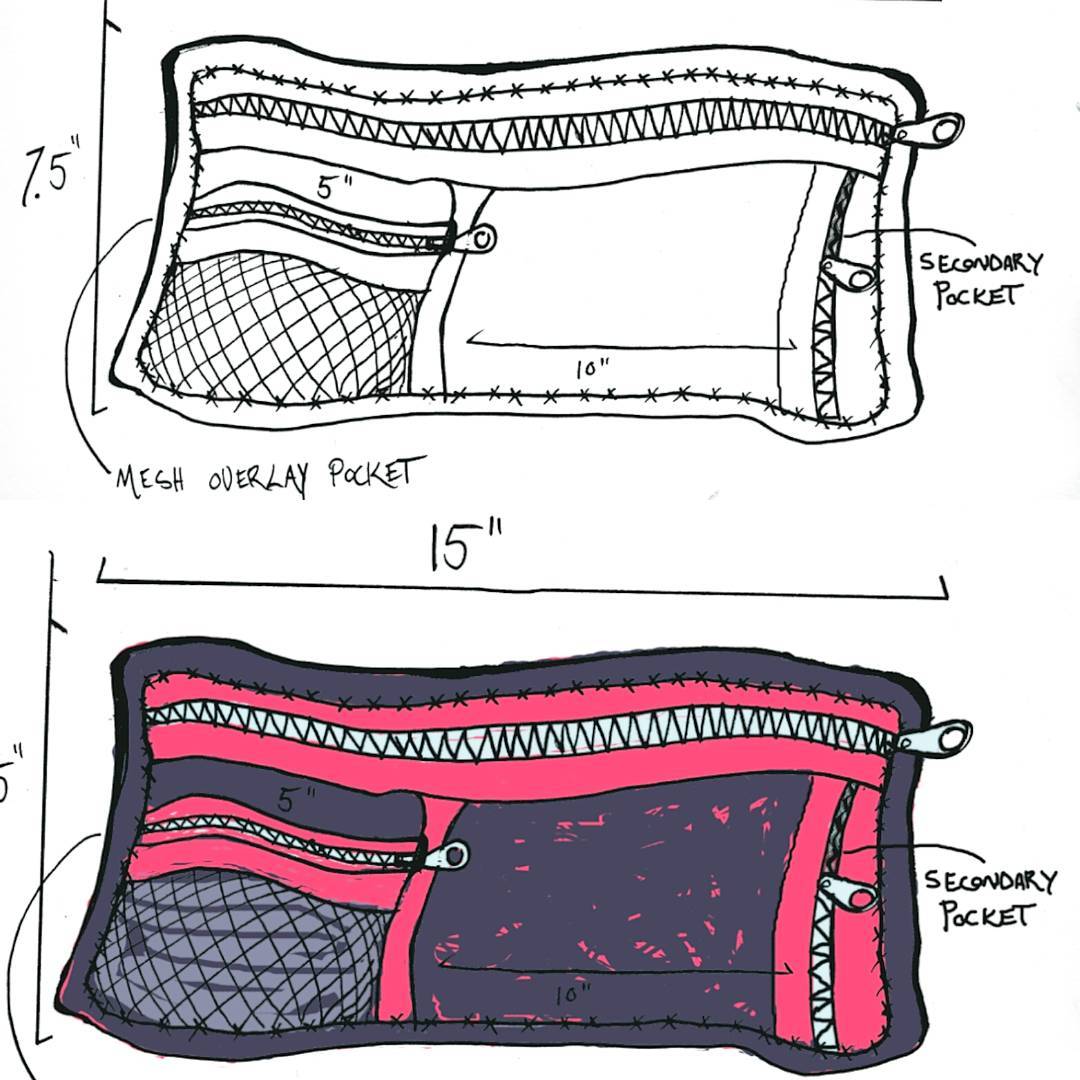 7.5"
5"
SECONDARY
POCKET
10"
MESH OVERLAY POCKET
15"
5"
5"
SECONDARY
POCKET
10"